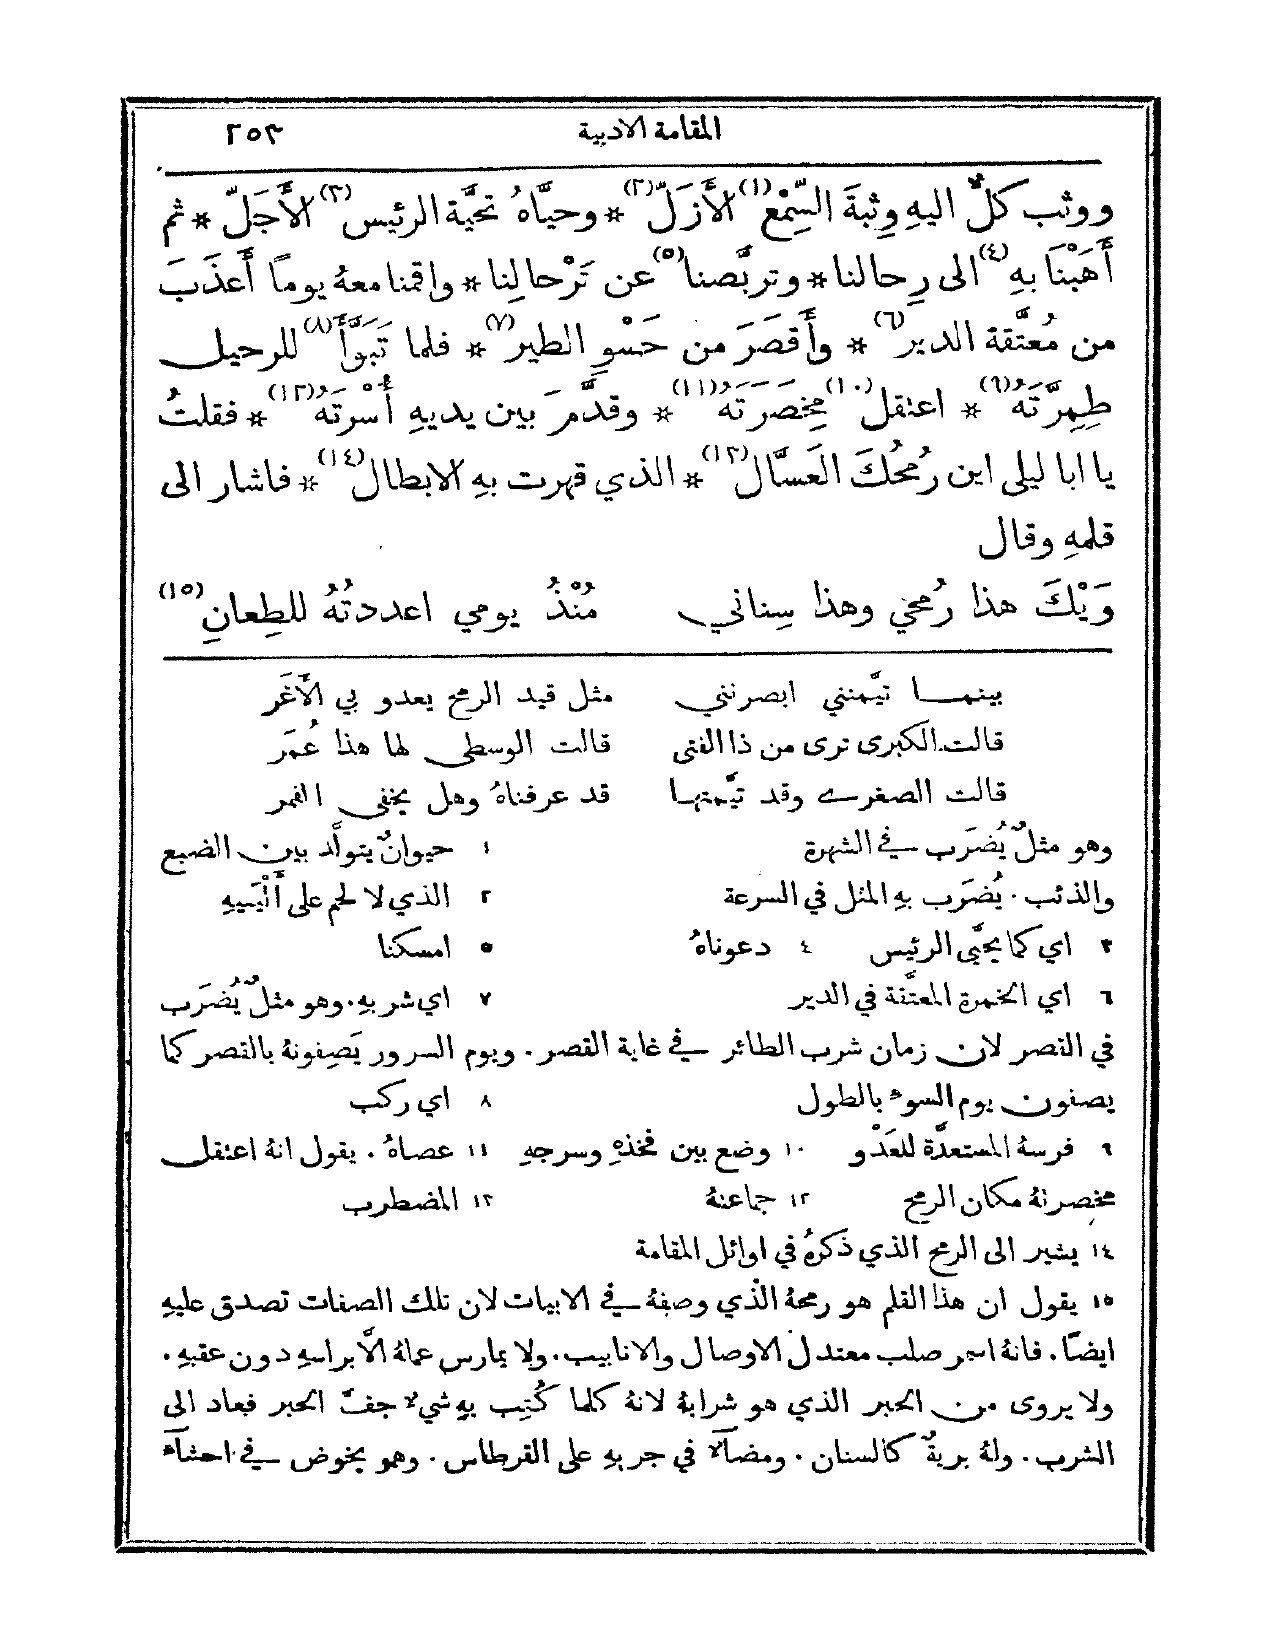 المقامة الادبية ٢٥٣
ووثب كلٌّ اليهِ وِثبةَ السِّمْعِ (١) الأَزَلِّ (٢) * وحيَّاهُ تحيَّة الرئيس (٣) الأَجَلِّ * ثم
أَهَبْنَا بهِ (٤) الى رِحالنا * وتربَّصنا (٥) عن تَرْحالِنا * واقمنا معهُ يومًا أَعذَبَ
من مُعتَّقة الدير (٦) * وأَقصَرَ من حَسْوِ الطير (٧) * فلما تَبوَّأَ (٨) للرحيل
طِمِرَّتَهُ (٩) * اعتقل (١٠) مِخصَرَتَهُ (١١) * وقدَّم بين يديهِ أُسرتَهُ (١٢) * فقلتُ
يا ابا ليلى اين رُمحُكَ العَسَّال (١٣) * الذي قهرت بهِ الابطال (١٤) * فاشار الى
قلمهِ وقال
وَيْكَ هذا رُمحي وهذا سِناني مُنْذُ يومي اعددتُهُ للطِعانِ (١٥)
بينمـا تيَّمنني ابصرنني مثل قيد الرمح يعدو بي الأَغَر
قالت الكبرى ترى من ذا الفتى قالت الوسطى لها هذا عُمَر
قالت الصغرى وقد تيَّمتها قد عرفناهُ وهل يخفى القمر
وهو مثلٌ يُضرَب في الشهرة ١ حيوانٌ يتولَّد بين الضبع
والذئب . يُضرَب بهِ المثل في السرعة ٢ الذي لا لحم على أَلْيَيهِ
٣ اي كما يحيَّى الرئيس ٤ دعوناهُ ٥ امسكنا
٦ اي الخمرة المعتَّقة في الدير ٧ اي شربهِ . وهو مثلٌ يُضرَب
في القصر لان زمان شرب الطائر في غاية القصر . ويوم السرور يَصِفونهُ بالقصر كما
يصفون يوم السوء بالطول ٨ اي ركب
٩ فرسهُ المستعدَّة للعَدْو ١٠ وضع بين فخذهِ وسرجهِ ١١ عصاهُ . يقول انهُ اعتقل
مخصرتهُ مكان الرمح ١٢ جماعتهُ ١٣ المضطرب
١٤ يشير الى الرمح الذي ذكرهُ في اوائل المقامة
١٥ يقول ان هذا القلم هو رمحهُ الذي وصفهُ في الابيات لان تلك الصفات تصدق عليهِ
ايضًا . فانهُ اسمر صلب معتدل الاوصال والانابيب . ولا يمارس عملهُ الَّا براسهِ دون عقبهِ .
ولا يروى من الحبر الذي هو شرابهُ لانهُ كلما كُتِب بهِ شيءٌ جفَّ الحبر فعاد الى
الشرب . ولهُ بريةٌ كالسنان . ومضآءٌ في جريهِ على القرطاس . وهو يخوض في احشآء